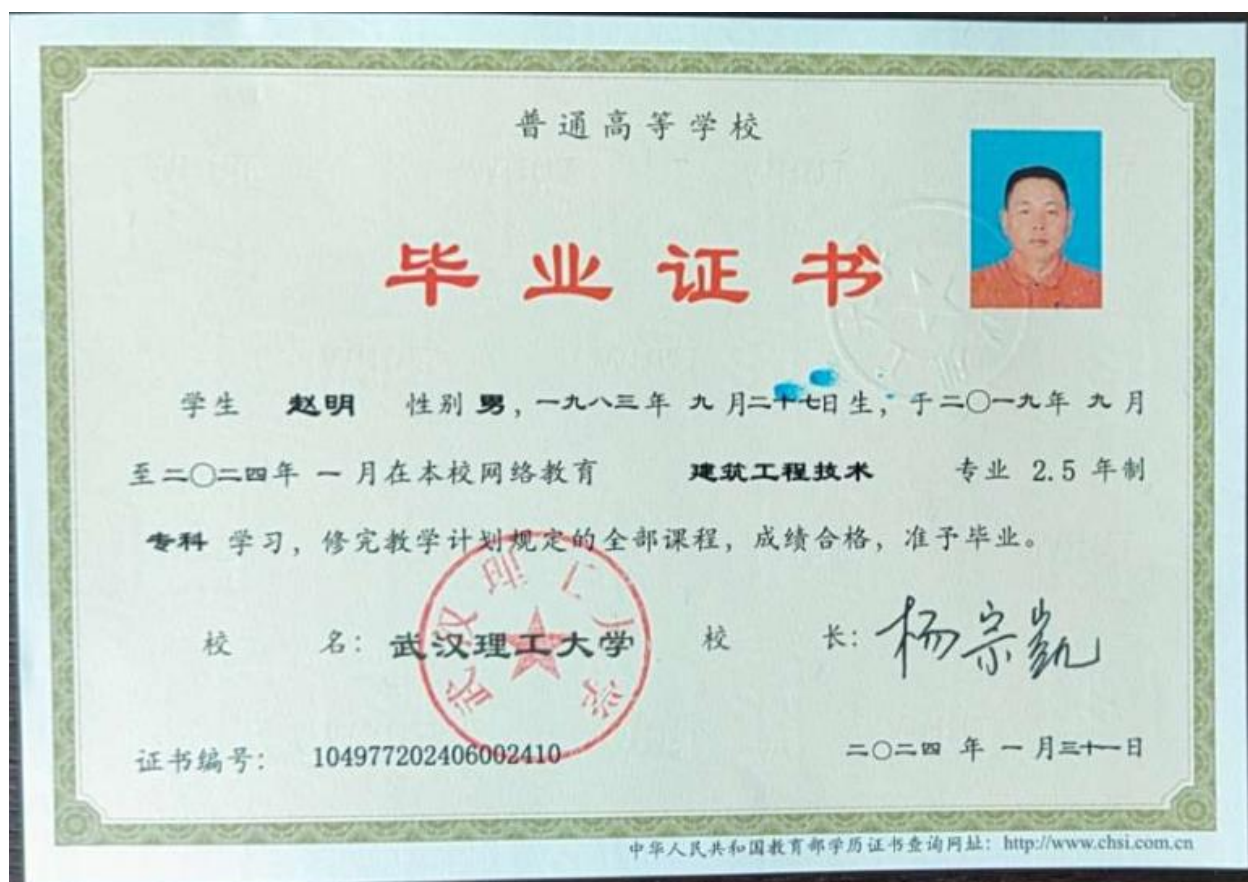 普通高等学校
毕业证书
学生 赵明 性别 男，一九八三年 九月二十七日生，于二〇一九年 九月
至二〇二四年 一月在本校网络教育 建筑工程技术 专业 2.5 年制
专科 学习，修完教学计划规定的全部课程，成绩合格，准予毕业。
校 名：武汉理工大学 校 长：杨宗凯
武汉理工大学
证书编号： 104977202406002410 二〇二四 年 一 月三十一日
中华人民共和国教育部学历证书查询网址：http://www.chsi.com.cn